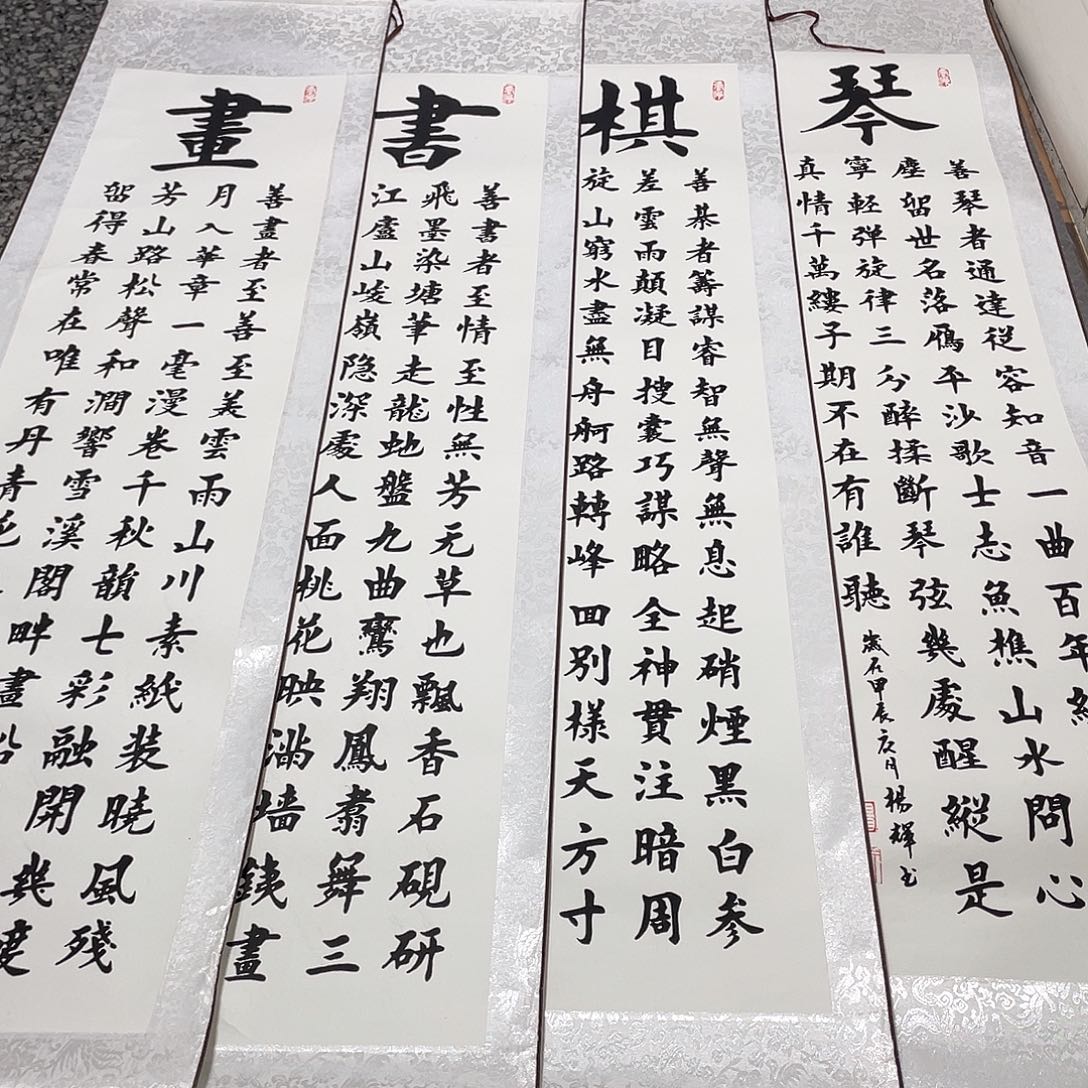 琴
善琴者通達從容知音一曲百年經
塵留世名落雁平沙歌士志魚樵山水問心
寧輕弹旋律三分醉揉斷琴弦幾處醒縱是
真情千萬縷子期不在有誰聽
歲在甲辰 月楊輝书
棋
善棊者籌謀睿智無聲無息起硝煙黑白參
差雲雨顛凝目搜囊巧謀略全神貫注暗周
旋山窮水盡無舟舸路轉峰回別樣天方寸
書
善書者至情至性無芳无草也飄香石硯研
飛墨染塘筆走龍虵盤九曲鸞翔鳳翥舞三
江廬山峻嶺隐深處人面桃花映滿墙銕畫
畫
善畫者至善至美雲雨山川素紙装曉風殘
月入華章一毫漫卷千秋韻七彩融開幾度
芳山路松聲和澗響雪溪閣畔畫船
留得春常在唯有丹青花